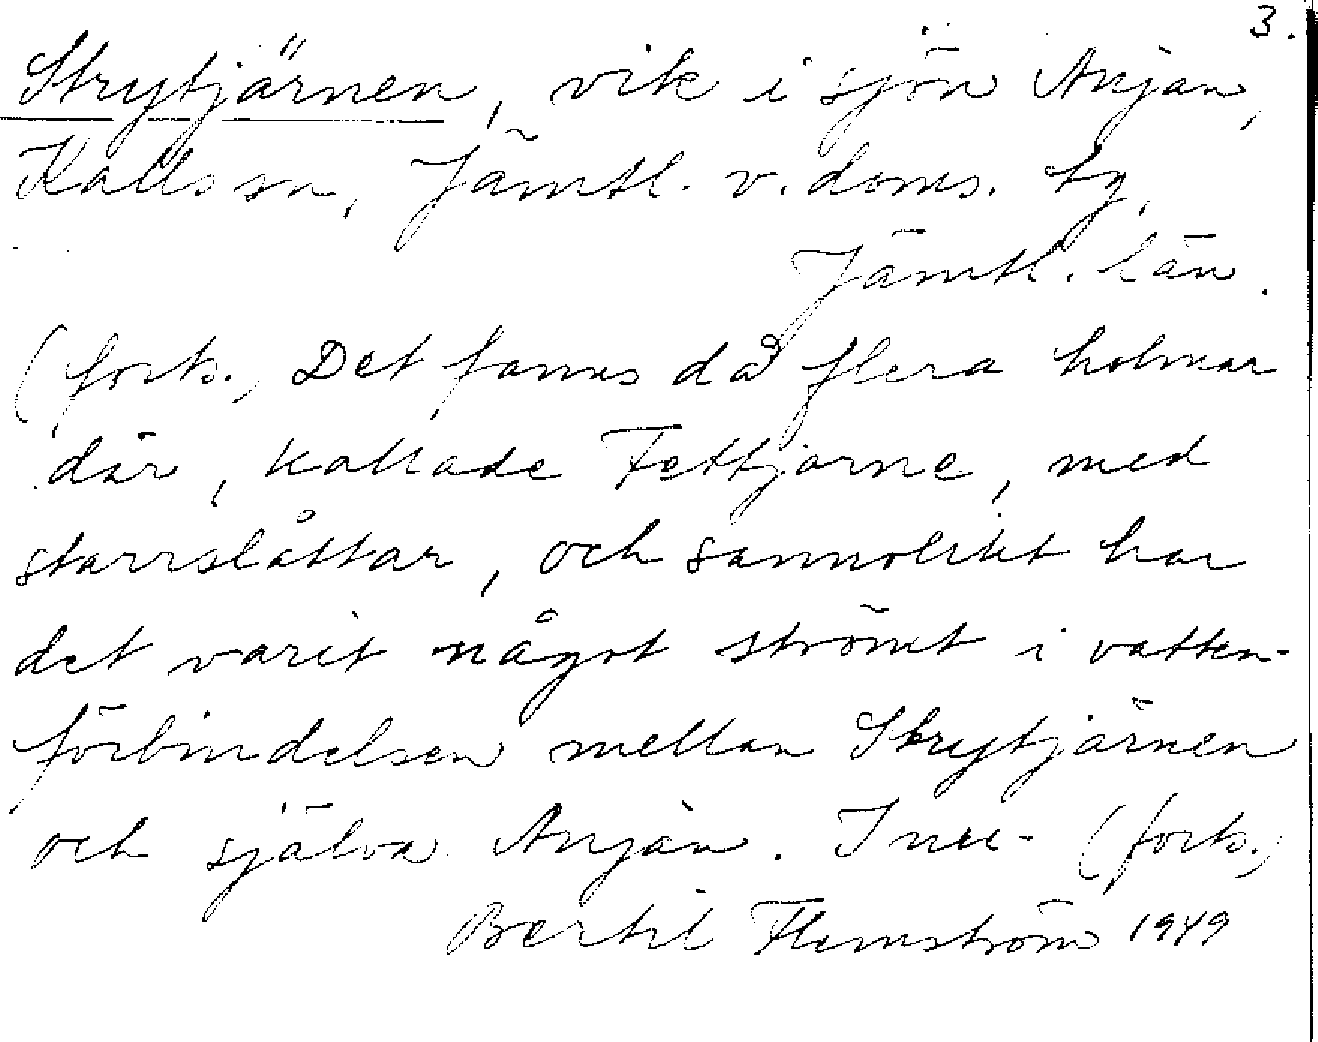 3.
Strytjärnen, vik i sjön Anjan,
Kalls sn, Jämtl. v. doms. tg,
Jämtl. län.
(forts.) Det fanns då flera holmar
där, kallade Fettjarne, med
starrslåttar, och sannolikt har
det varit något strömt i vatten-
förbindelsen mellan Strytjärnen
och själva Anjan. Inne- (forts.)
Bertil Flemström 1949